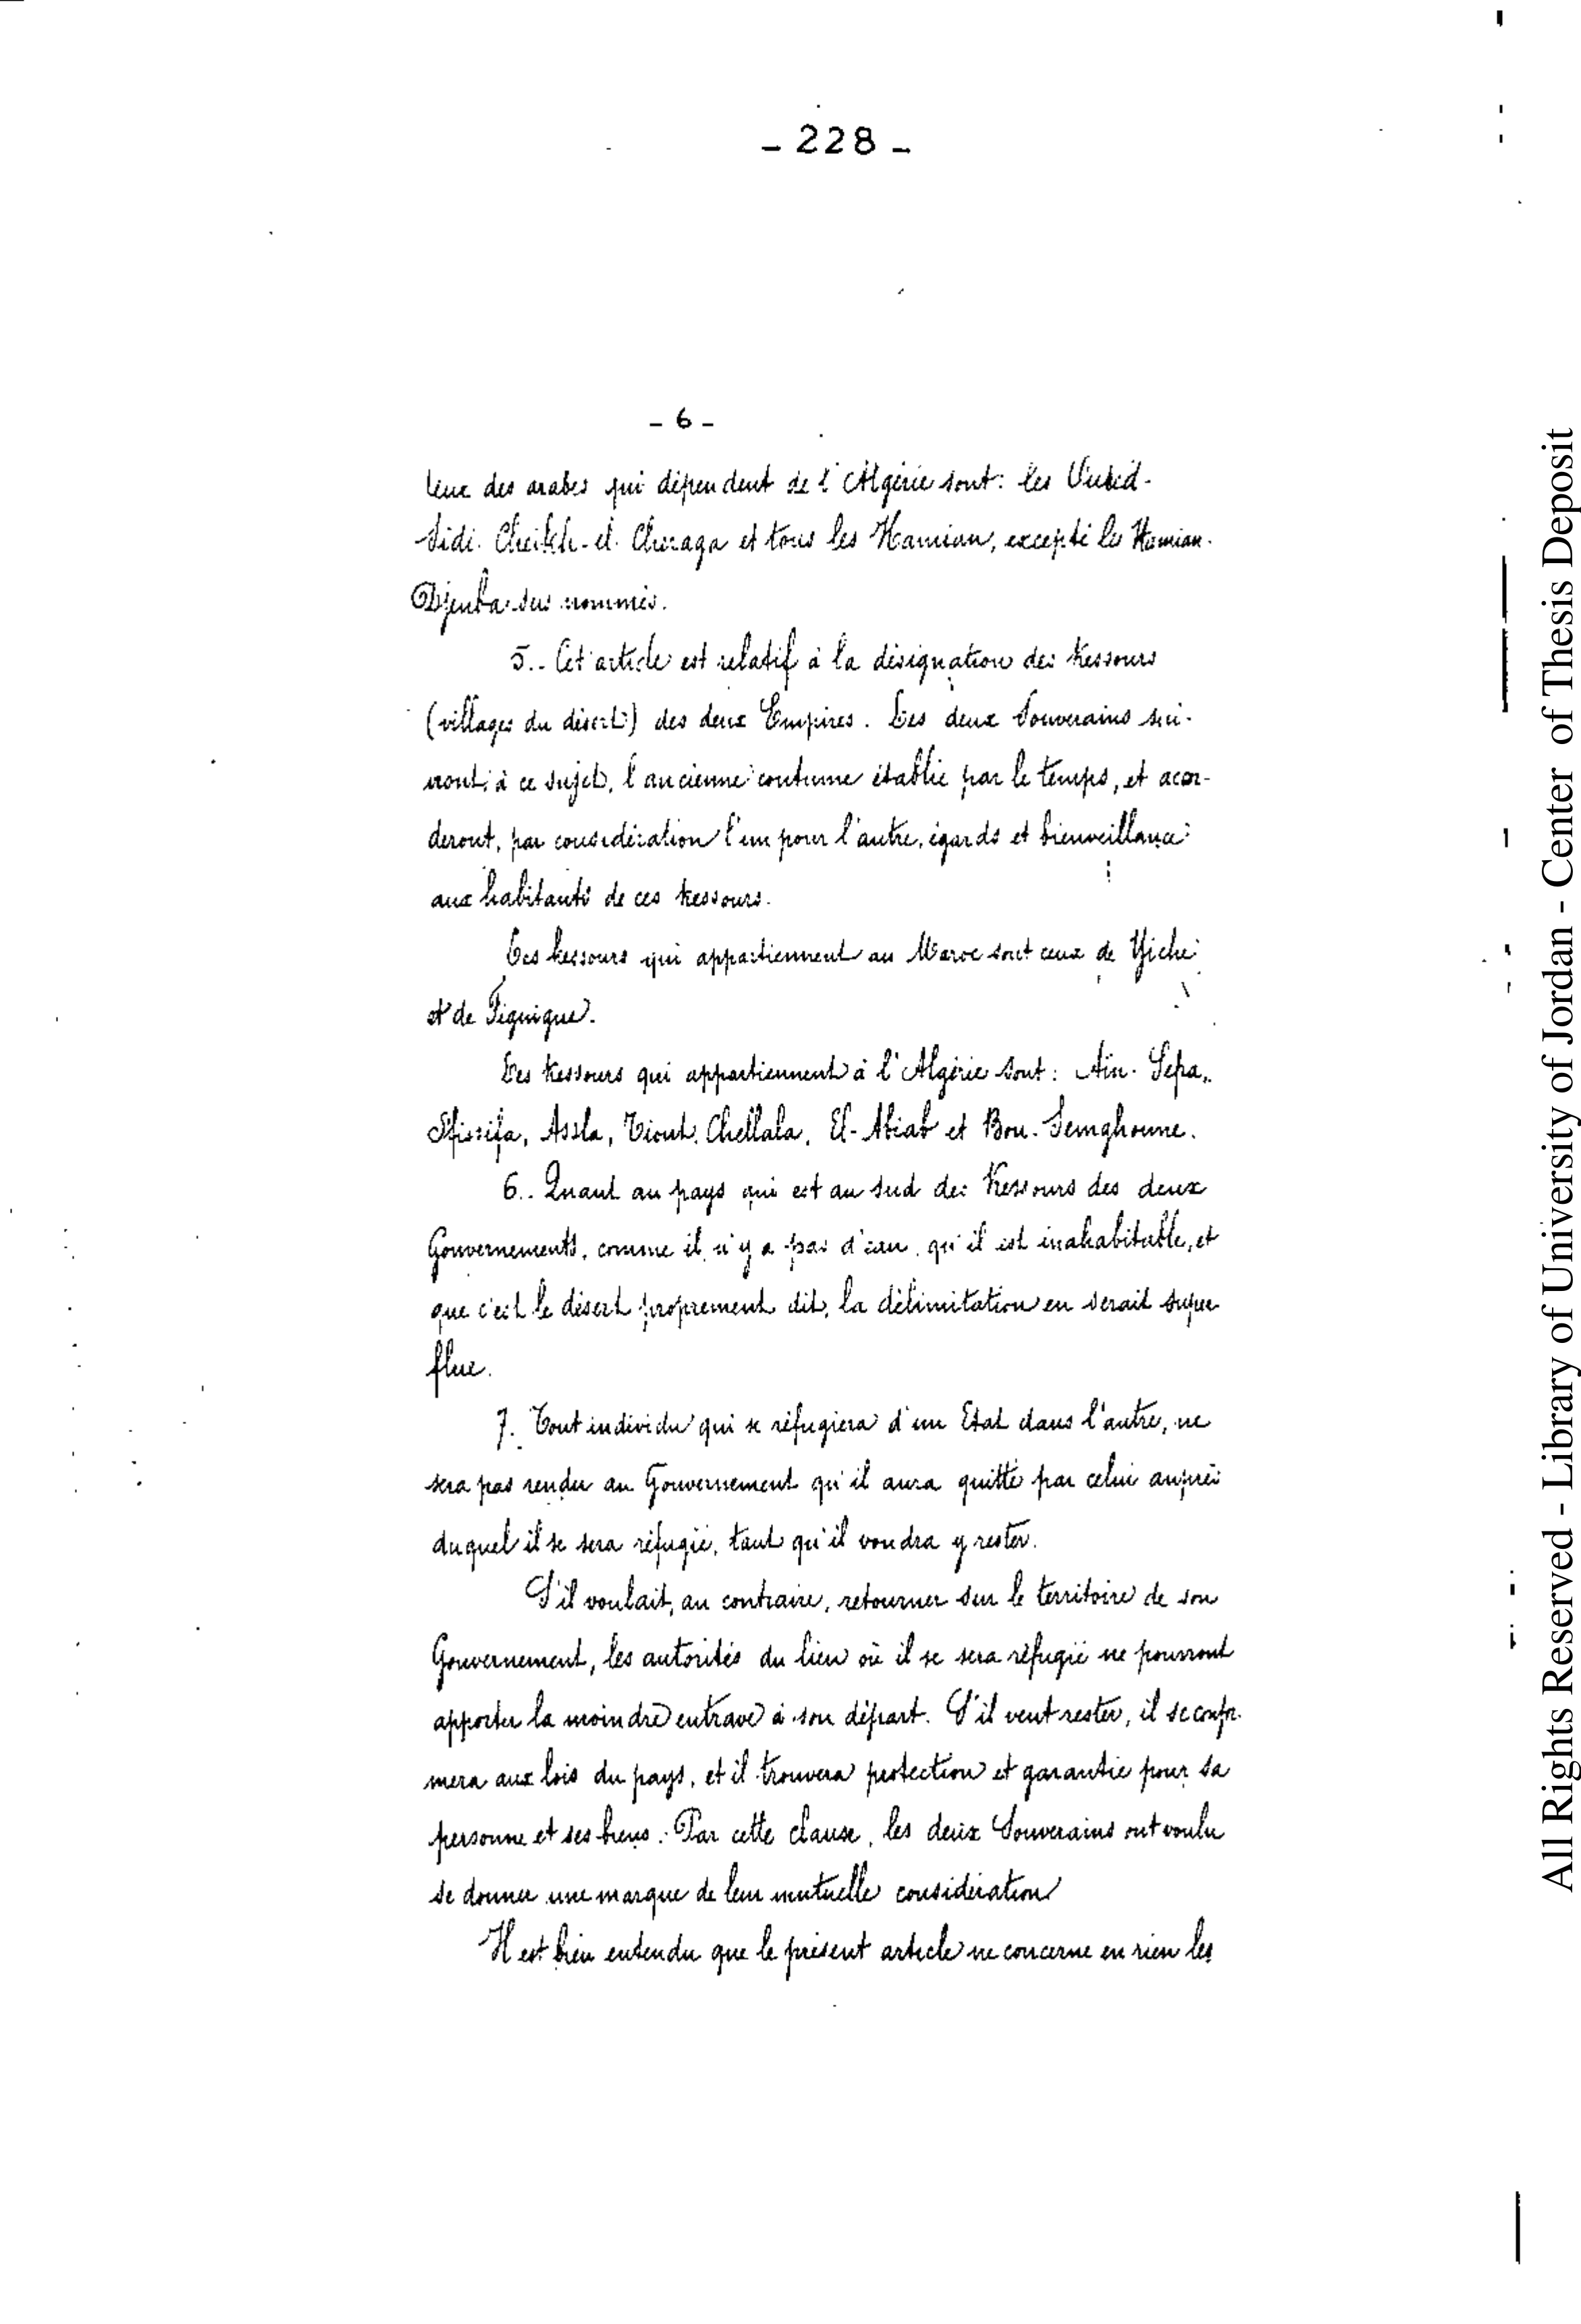 - 228 -
- 6 -
Ceux des arabes qui dépendent de l'Algérie sont: les Ouled-
Sidi-Cheikh-el-Cheraga et tous les Hamian, excepté les Hamian-
Djenba sus nommés.
5.- Cet article est relatif à la désignation des Kessours
(villages du désert) des deux Empires. Les deux Souverains sui-
vront, à ce sujet, l'ancienne coutume établie par le temps, et accor-
deront, par considération l'un pour l'autre, égards et bienveillance
aux habitants de ces Kessours.
Les Kessours qui appartiennent au Maroc sont ceux de Yiche
et de Figuigue.
Les Kessours qui appartiennent à l'Algérie sont: Aïn-Sefra,
Sfissifa, Assla, Tiout, Chellala, El-Abiab et Bou-Semghoune.
6.- Quant au pays qui est au sud des Kessours des deux
Gouvernements, comme il n'y a pas d'eau, qu'il est inahabitable, et
que c'est le désert proprement dit, la délimitation en serait super
flue.
7.- Tout individu qui se réfugiera d'un Etat dans l'autre, ne
sera pas rendu au Gouvernement qu'il aura quitté par celui auprès
duquel il se sera réfugié, tant qu'il voudra y rester.
S'il voulait, au contraire, retourner sur le territoire de son
Gouvernement, les autorités du lieu où il se sera réfugié ne pourront
apporter la moindre entrave à son départ. S'il veut rester, il se confor-
mera aux lois du pays, et il trouvera protection et garantie pour sa
personne et ses biens. Par cette clause, les deux Souverains ont voulu
se donner une marque de leur mutuelle considération
Il est bien entendu que le présent article ne concerne en rien les
All Rights Reserved - Library of University of Jordan - Center of Thesis Deposit